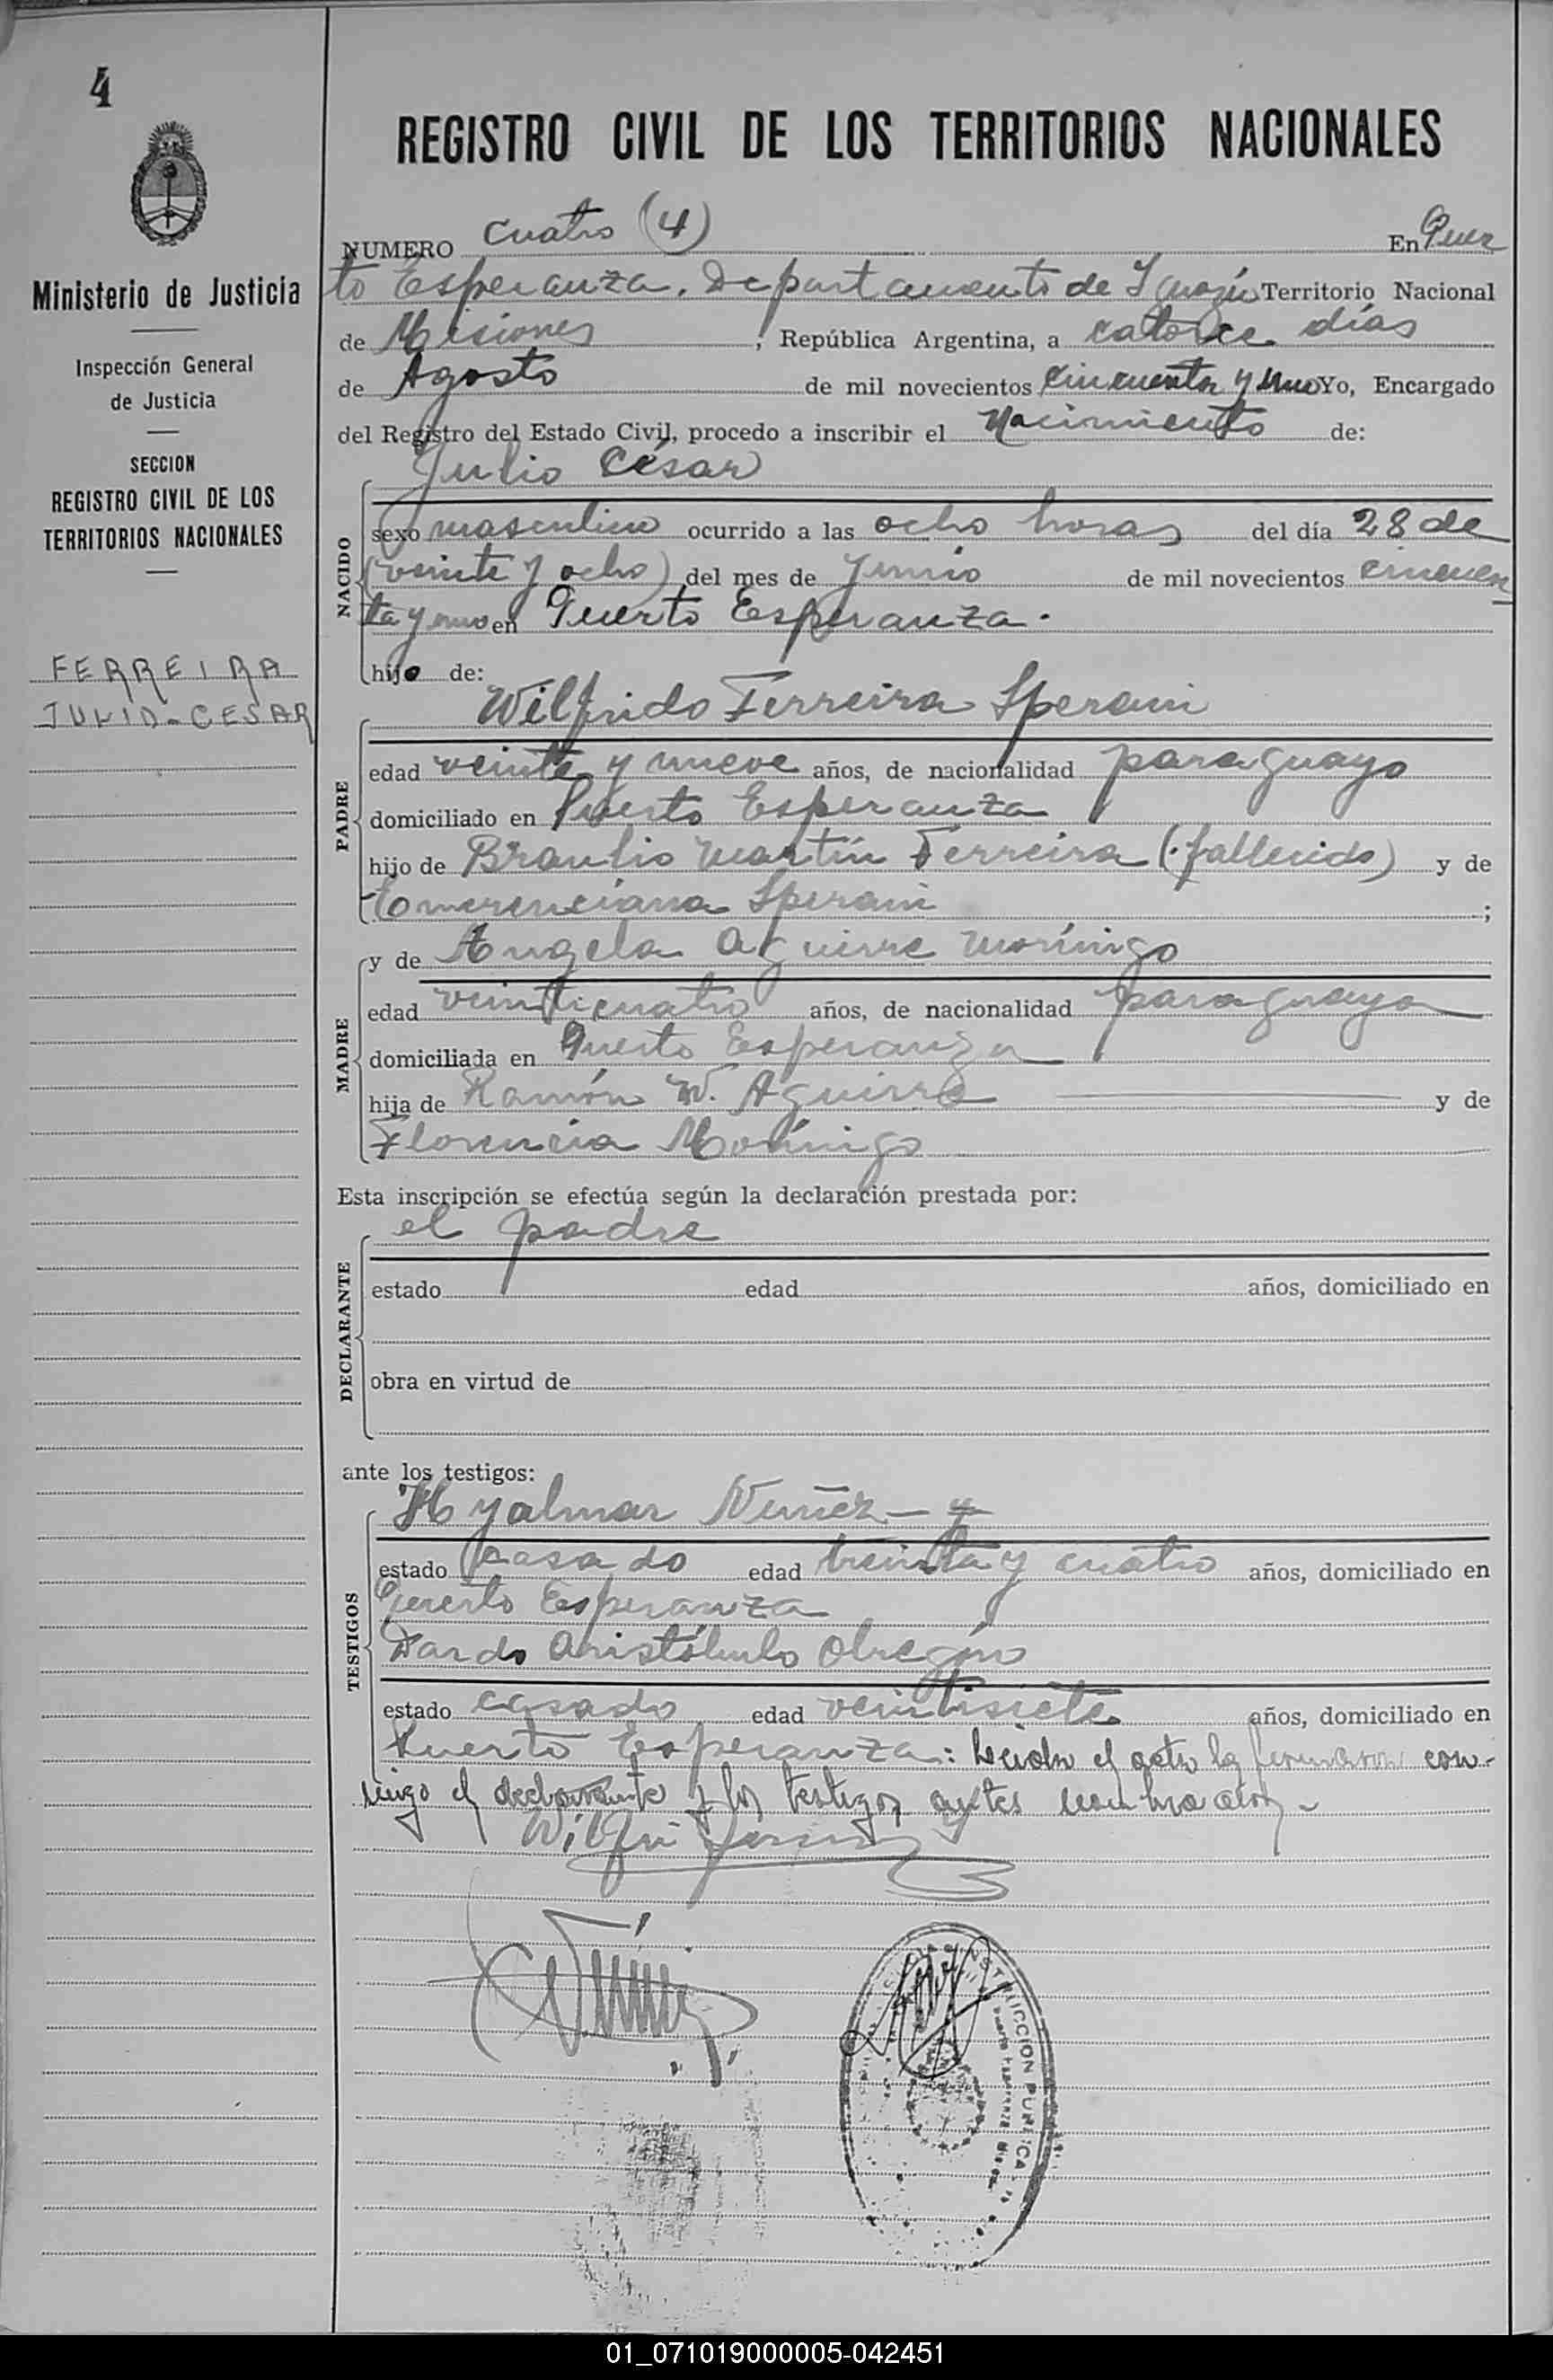 4
Ministerio de Justicia
Inspección General
de Justicia
SECCION
REGISTRO CIVIL DE LOS
TERRITORIOS NACIONALES
FERREIRA
JULIO-CESAR
REGISTRO CIVIL DE LOS TERRITORIOS NACIONALES
NUMERO cuatro (4) En Puer
to Esperanza. Departamento de Iguazú Territorio Nacional
de Misiones, República Argentina, a catorce días
de Agosto de mil novecientos cincuenta y uno Yo, Encargado
del Registro del Estado Civil, procedo a inscribir el Nacimiento de:
NACIDO
Julio César
sexo masculino ocurrido a las ocho horas del día 28 de
(veinte y ocho) del mes de Junio de mil novecientos cincuen
ta y uno en Puerto Esperanza.
hijo de:
PADRE
Wilfrido Ferreira Sperani
edad veinte y nueve años, de nacionalidad paraguayo
domiciliado en Puerto Esperanza
hijo de Braulio Martín Ferreira (fallecido) y de
Emerenciana Sperani;
MADRE
y de Angela Aguirre Morínigo
edad veinticuatro años, de nacionalidad paraguaya
domiciliada en Puerto Esperanza
hija de Ramón W. Aguirre y de
Florencia Morínigo
Esta inscripción se efectúa según la declaración prestada por:
DECLARANTE
el padre
estado edad años, domiciliado en
obra en virtud de
ante los testigos:
TESTIGOS
Hyalmar Nuñez - y
estado casado edad treinta y cuatro años, domiciliado en
Puerto Esperanza
Dardo Aristóbulo Obregón
estado casado edad veintisiete años, domiciliado en
Puerto Esperanza: Leida el acta la firmaron con-
migo el declarante y los testigos antes nombrados -
INSTRUCCION PUBLICA
01_071019000005-042451